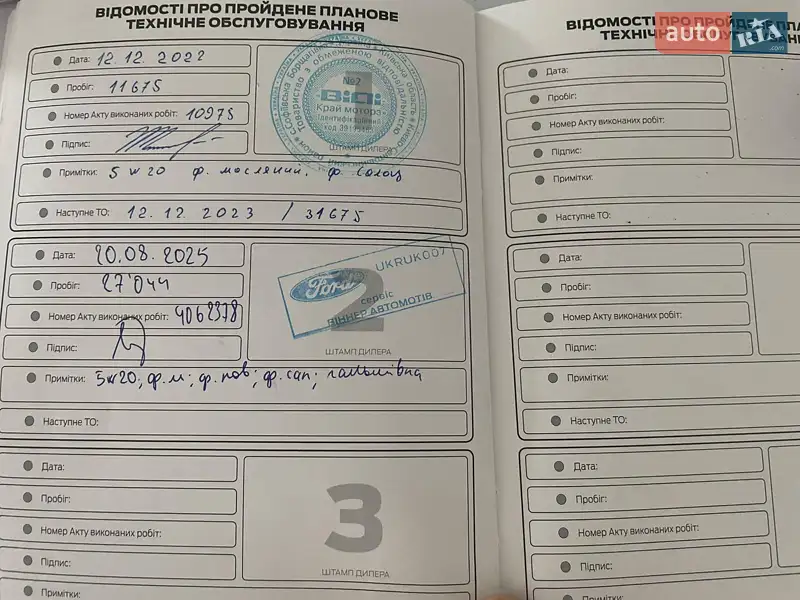 ВІДОМОСТІ ПРО ПРОЙДЕНЕ ПЛАНОВЕ
ТЕХНІЧНЕ ОБСЛУГОВУВАННЯ
Дата: 12.12.2022
Пробіг: 11675
Номер Акту виконаних робіт: 10975
Підпис:
№2
ВіДі
Край моторз
Ідентифікаційний
ШТАМП ДИЛЕРА
Примітки: 5W20 ф. масляний, ф. салон
Наступне ТО: 12.12.2023 / 31675
Дата: 20.08.2025
Пробіг: 27'044
Номер Акту виконаних робіт: 4062378
Підпис:
2
UKRUK007
Ford
сервіс
ВІННЕР АВТОМОТІВ
ШТАМП ДИЛЕРА
Примітки: 5W20; ф.м; ф.пов; ф.сал; гальмівна
Наступне ТО:
3
Дата:
Пробіг:
Номер Акту виконаних робіт:
Підпис:
ШТАМП ДИЛЕРА
Примітки:
ВІДОМОСТІ ПРО ПРОЙДЕНЕ
ТЕХНІЧНЕ
auto RIA .com
Дата:
Пробіг:
Номер Акту виконаних робіт:
Підпис:
Примітки:
Наступне ТО:
Дата:
Пробіг:
Номер Акту виконаних робіт:
Підпис:
Примітки:
Наступне ТО:
Дата:
Пробіг:
Номер Акту виконаних робіт:
Підпис:
Примітки: